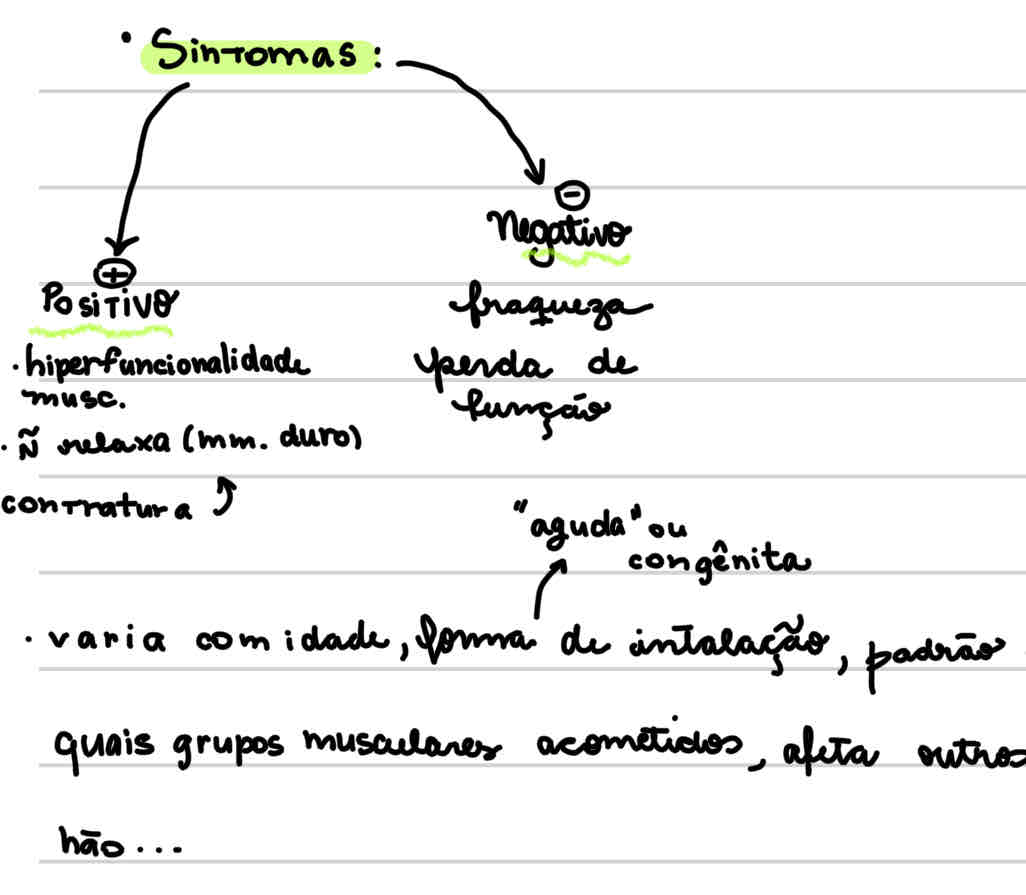 • Sintomas:
⊕
Positivo
· hiperfuncionalidade
musc.
· Ñ relaxa (mm. duro)
contratura
⊖
Negativo
fraqueza
perda de
função
"aguda" ou
congênita
· varia com idade, forma de intalação, padrão
quais grupos musculares acometidos, afeta outros
não...